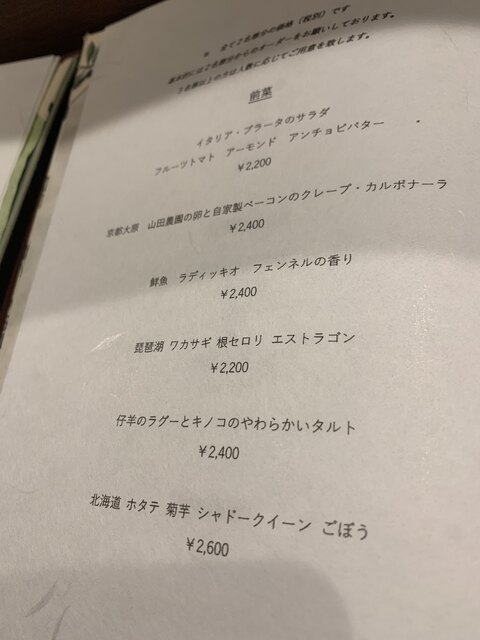 ※ 全て2名様分の価格（税別）です
基本的には2名様分からのオーダーをお願いしております。
3名様以上の方は人数に応じてご用意を致します。
前菜
イタリア・ブラータのサラダ
フルーツトマト アーモンド アンチョビバター
¥2,200
京都大原 山田農園の卵と自家製ベーコンのクレープ・カルボナーラ
¥2,400
鮮魚 ラディッキオ フェンネルの香り
¥2,400
琵琶湖 ワカサギ 根セロリ エストラゴン
¥2,200
仔羊のラグーとキノコのやわらかいタルト
¥2,400
北海道 ホタテ 菊芋 シャドークイーン ごぼう
¥2,600